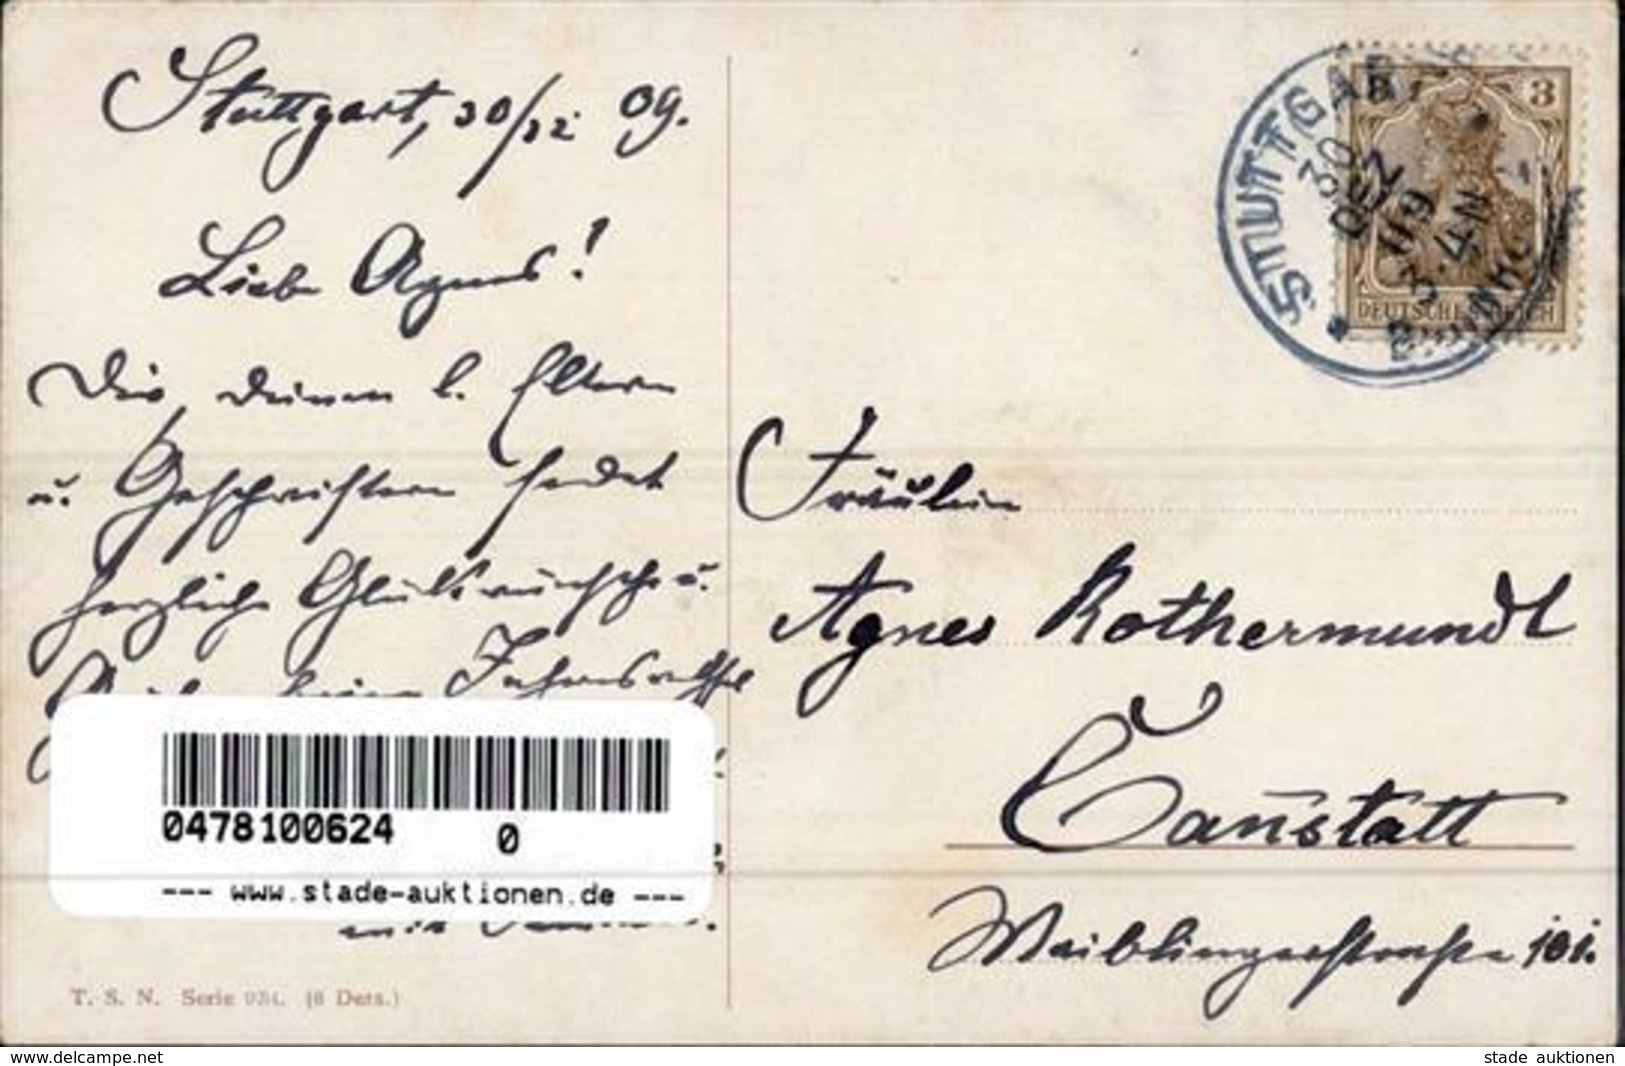 Stuttgart, 30/12 09.
Liebe Agnes!
Dir, deinen l. Eltern
u. Geschwistern sendet
herzliche Glückwünsche u.
zum Jahreswechsel
mit
0478100624 0
--- www.stade-auktionen.de ---
T. S. N. Serie 934. (6 Dess.)
STUTTGART
30 DEZ 09
3-4N
BAHNHOF
3
DEUTSCHES REICH
Fräulein
Agnes Rothermundt
Canstatt
Waiblingerstrasse 101.
www.delcampe.net
stade auktionen